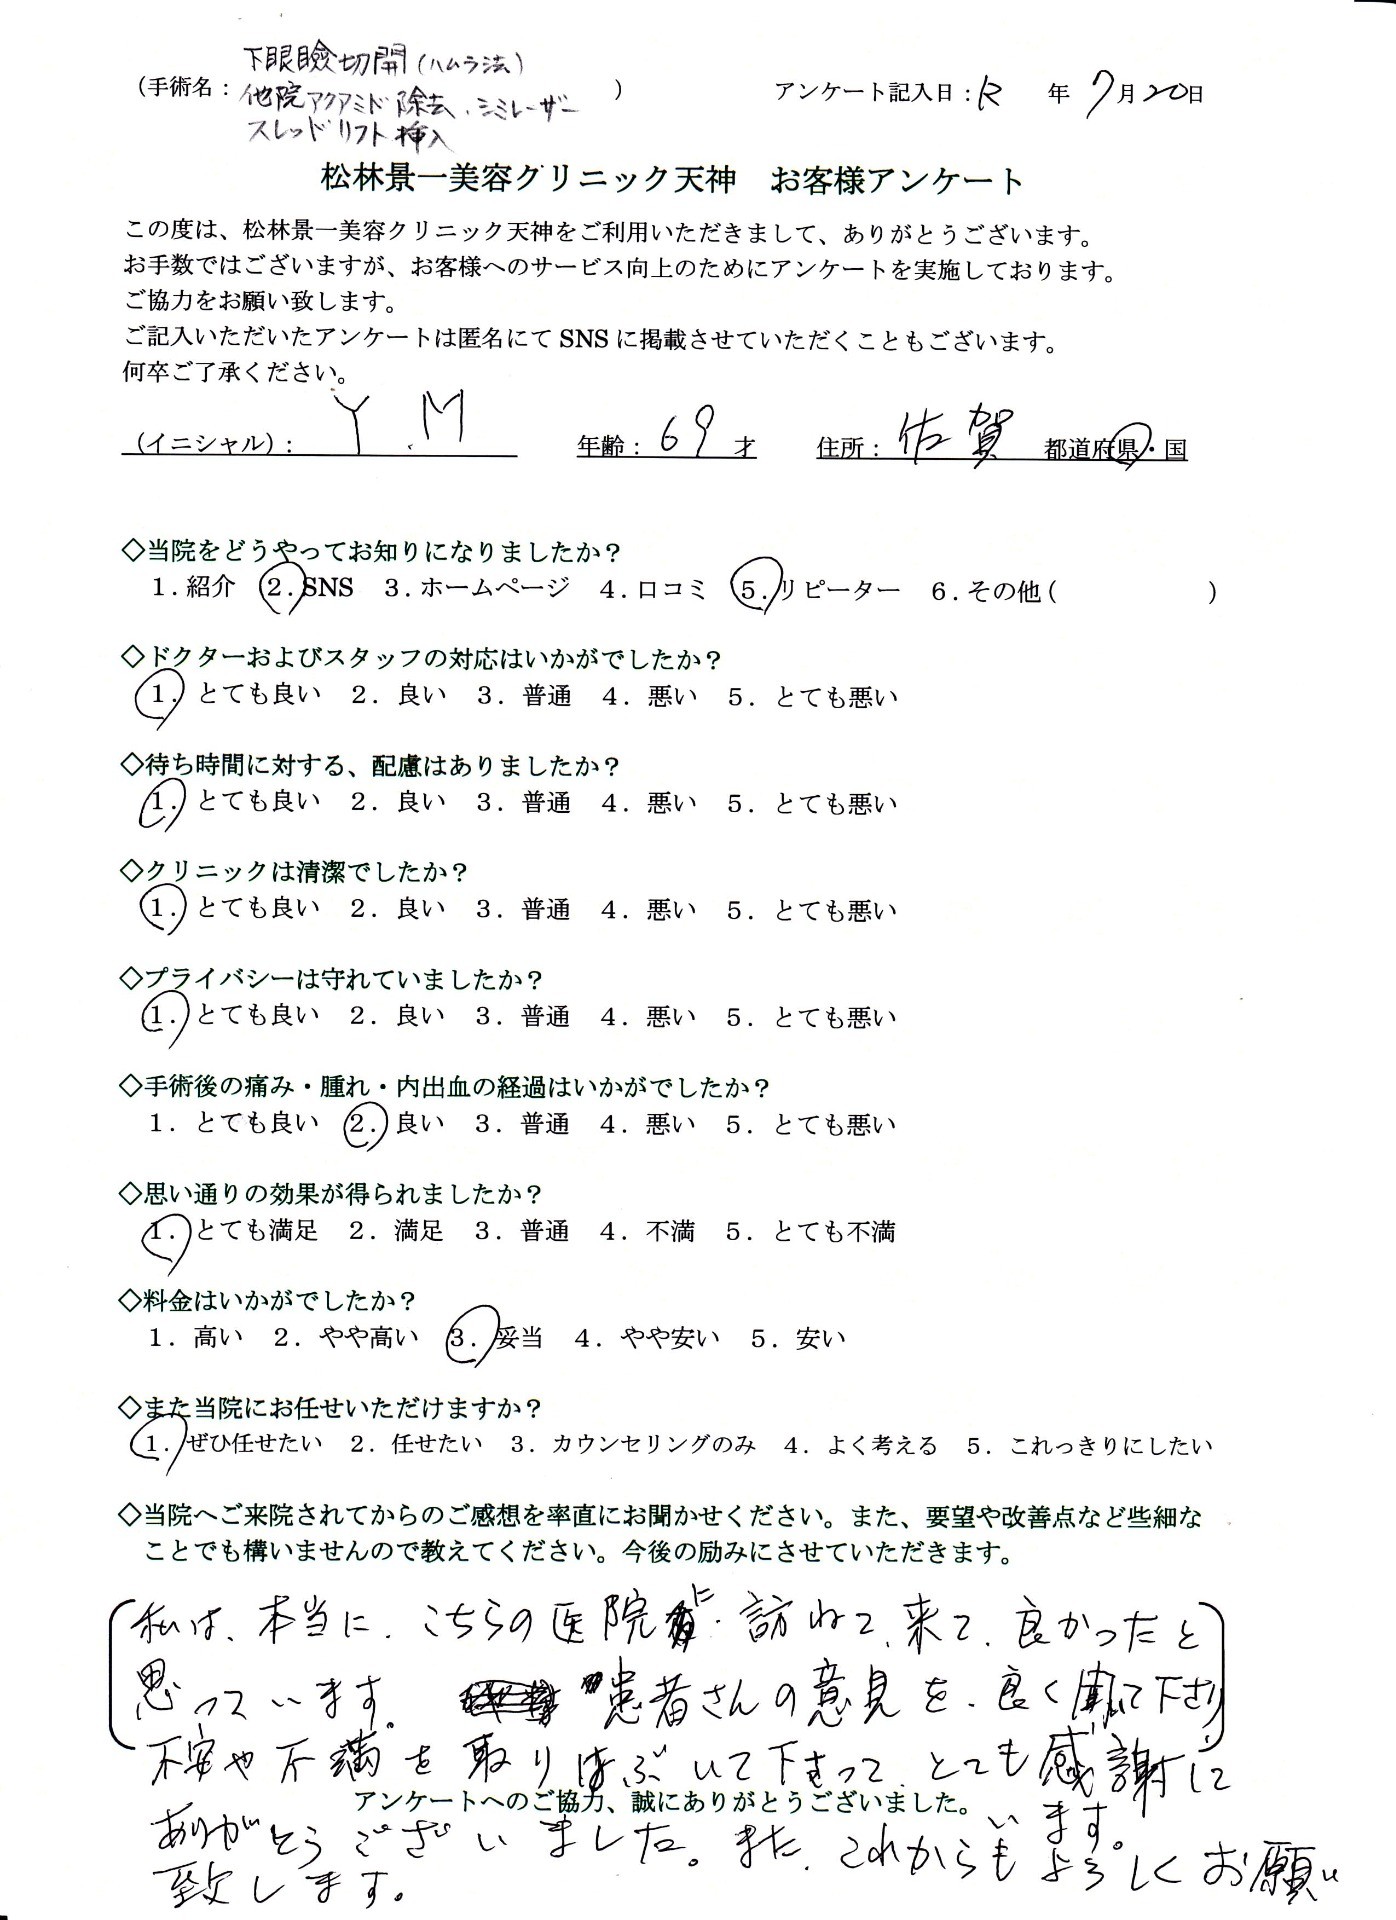 下眼瞼切開(ハムラ法)
(手術名: 他院アクアミド除去.シミレーザー )
スレッドリフト挿入
アンケート記入日:R 年 7月20日
松林景一美容クリニック天神 お客様アンケート
この度は、松林景一美容クリニック天神をご利用いただきまして、ありがとうございます。
お手数ではございますが、お客様へのサービス向上のためにアンケートを実施しております。
ご協力をお願い致します。
ご記入いただいたアンケートは匿名にて SNS に掲載させていただくこともございます。
何卒ご了承ください。
(イニシャル): Y.M 年齢:69才 住所:佐賀 都道府県・国
◇当院をどうやってお知りになりましたか?
1.紹介 2.SNS 3.ホームページ 4.口コミ 5.リピーター 6.その他( )
◇ドクターおよびスタッフの対応はいかがでしたか?
1. とても良い 2. 良い 3. 普通 4. 悪い 5. とても悪い
◇待ち時間に対する、配慮はありましたか?
1. とても良い 2. 良い 3. 普通 4. 悪い 5. とても悪い
◇クリニックは清潔でしたか?
1. とても良い 2. 良い 3. 普通 4. 悪い 5. とても悪い
◇プライバシーは守れていましたか?
1. とても良い 2. 良い 3. 普通 4. 悪い 5. とても悪い
◇手術後の痛み・腫れ・内出血の経過はいかがでしたか?
1. とても良い 2. 良い 3. 普通 4. 悪い 5. とても悪い
◇思い通りの効果が得られましたか?
1. とても満足 2. 満足 3. 普通 4. 不満 5. とても不満
◇料金はいかがでしたか?
1. 高い 2. やや高い 3. 妥当 4. やや安い 5. 安い
◇また当院にお任せいただけますか?
1. ぜひ任せたい 2. 任せたい 3. カウンセリングのみ 4. よく考える 5. これっきりにしたい
◇当院へご来院されてからのご感想を率直にお聞かせください。また、要望や改善点など些細な
ことでも構いませんので教えてください。今後の励みにさせていただきます。
私は、本当に、こちらの医院に、訪ねて、来て、良かったと
思っています。患者さんの意見を、良く聞いて下さり
不安や不満を取りはぶいて下さって、とても感謝して
います。
アンケートへのご協力、誠にありがとうございました。
ありがとうございました。また、これからもよろしくお願い
致します。